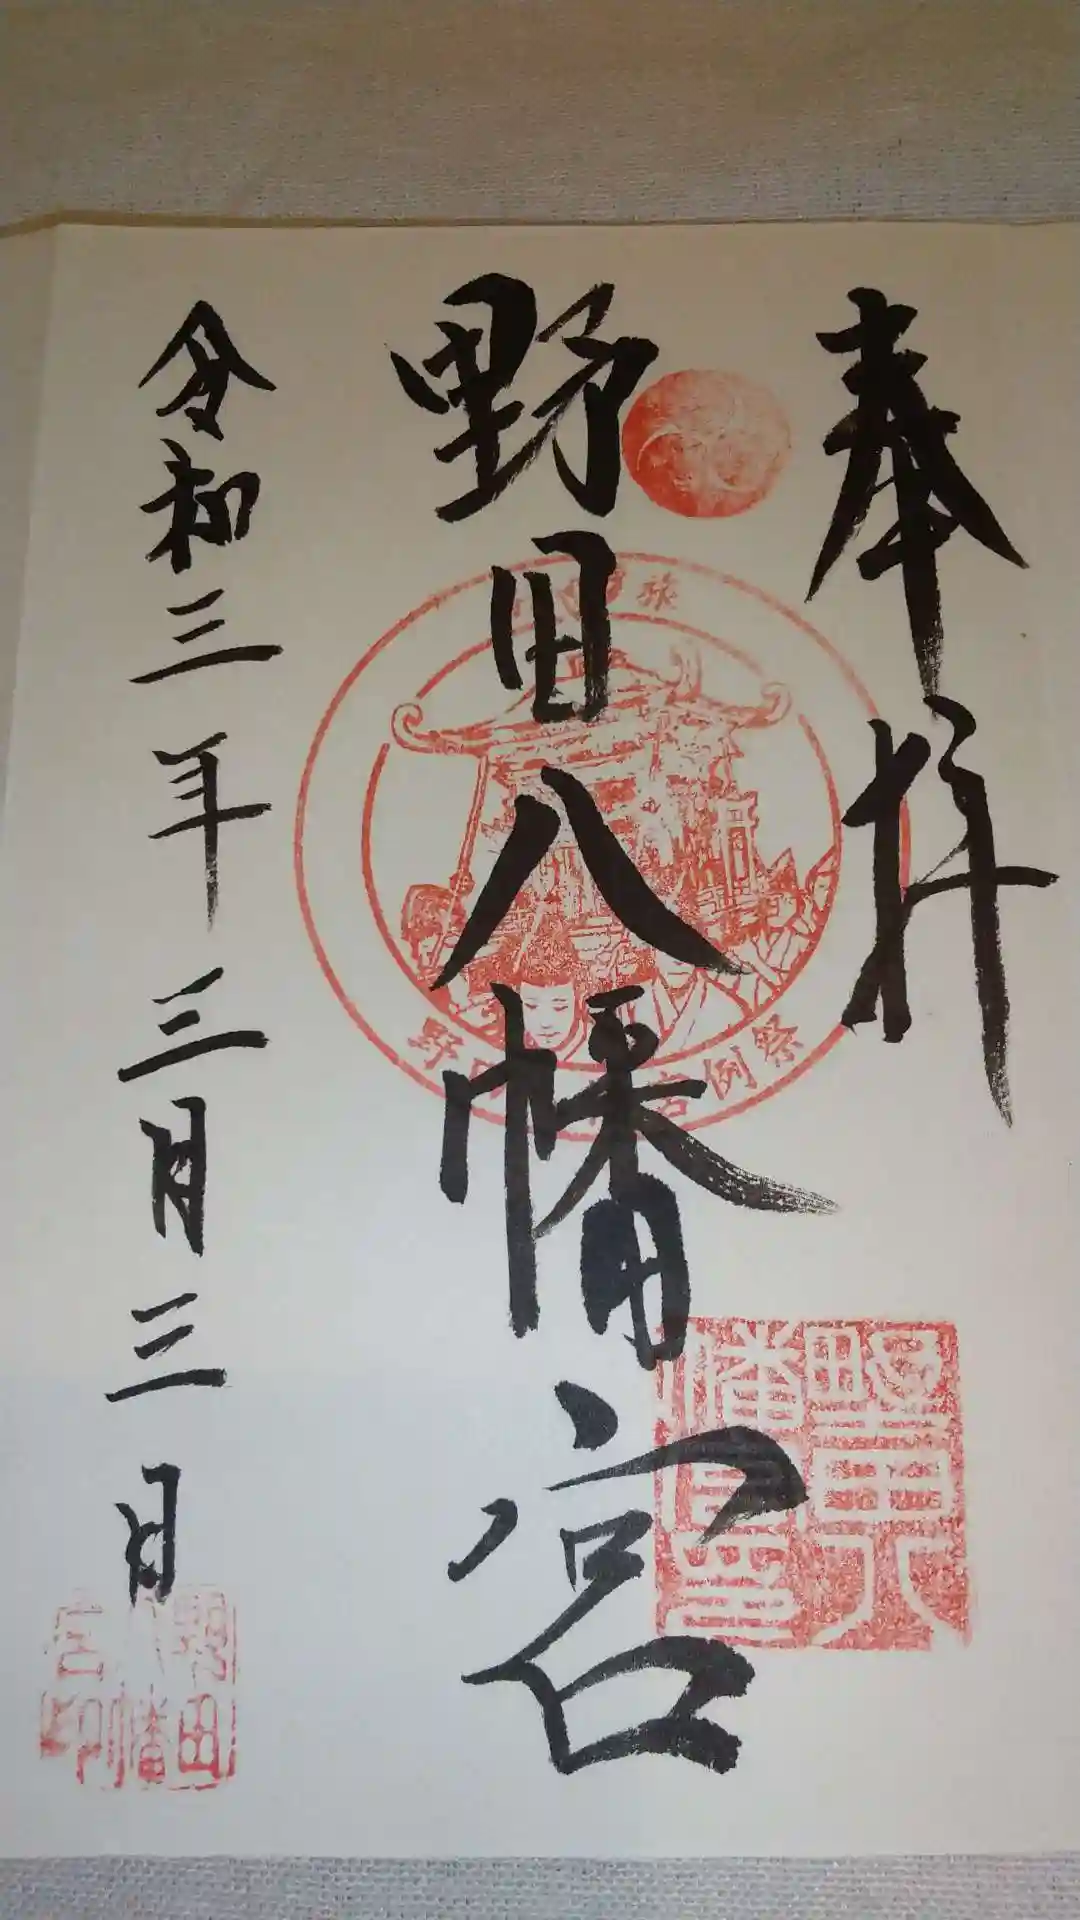 奉拝
野田八幡宮
令和三年三月三日
旅
野
宮例祭
野田八
幡宮
野田
八幡
宮印